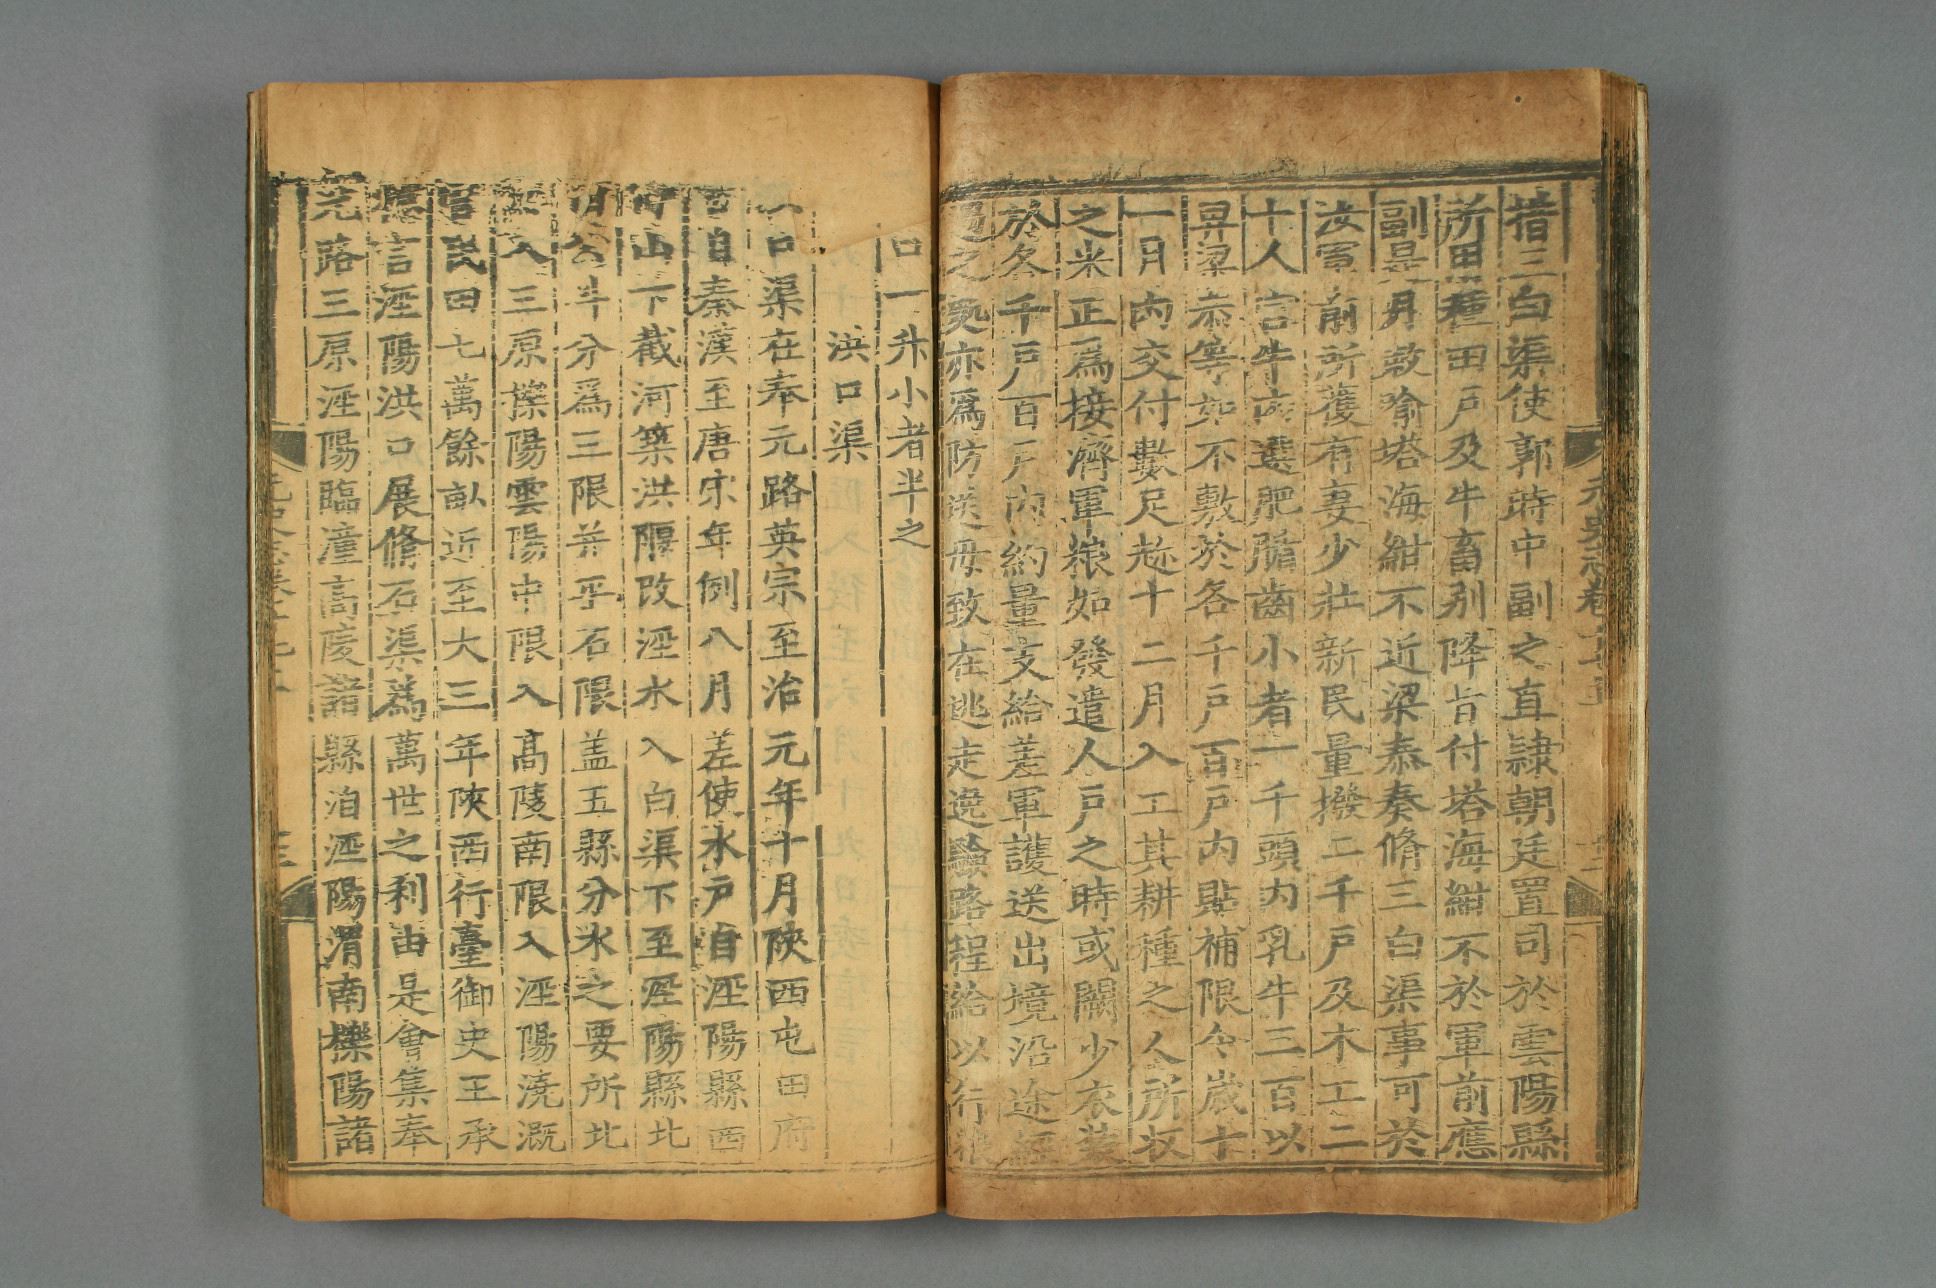 措三白渠使郭時中副之直隷朝廷置司於雲陽縣
所用種田戶及牛畜别降旨付塔海紺不於軍前應
副是月敕喻塔海紺不近梁泰奏脩三白渠事可於
汝軍前所獲有妻少壯新民量撥二千戶及木工二
十人官牛內選肥腯齒小者一千頭內乳牛三百以
畀梁泰等如不敷於各千戶百戶內貼補限今歲十
一月內交付數足趂十二月入工其耕種之人所收
之米正爲接濟軍粮如發遣人戶之時或闕少衣裝
於各千戶百戶內約量支給差軍護送出境沿途經
過之處亦爲防送毋致在逃走逸驗路程給以行粮
口一升小者半之
洪口渠
口渠在奉元路英宗至治元年十月陝西屯田府
言自秦漢至唐宋年例八月差使水戶自涇陽縣西
仲山下截河築洪隁改涇水入白渠下至涇陽縣北
白公斗分爲三限并平石限盖五縣分水之要所北
限入三原櫟陽雲陽中限入髙陵南限入涇陽澆溉
官民田七萬餘畝近至大三年陝西行臺御史王承
德言涇陽洪口展修石渠爲萬世之利由是會集奉
元路三原涇陽臨潼高陵諸縣洎涇陽渭南櫟陽諸